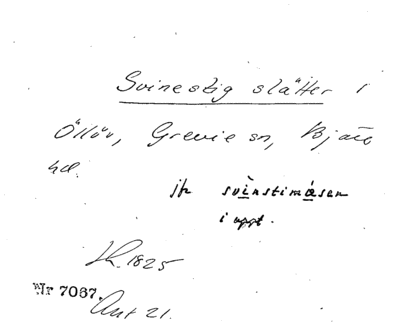 Svinestig slätter i
Öllöv, Grevie sn, Bjäre
hd.
jfr svinstimåsen
i uppt.
Lk. 1825
Nr 7067.
Ant 21.